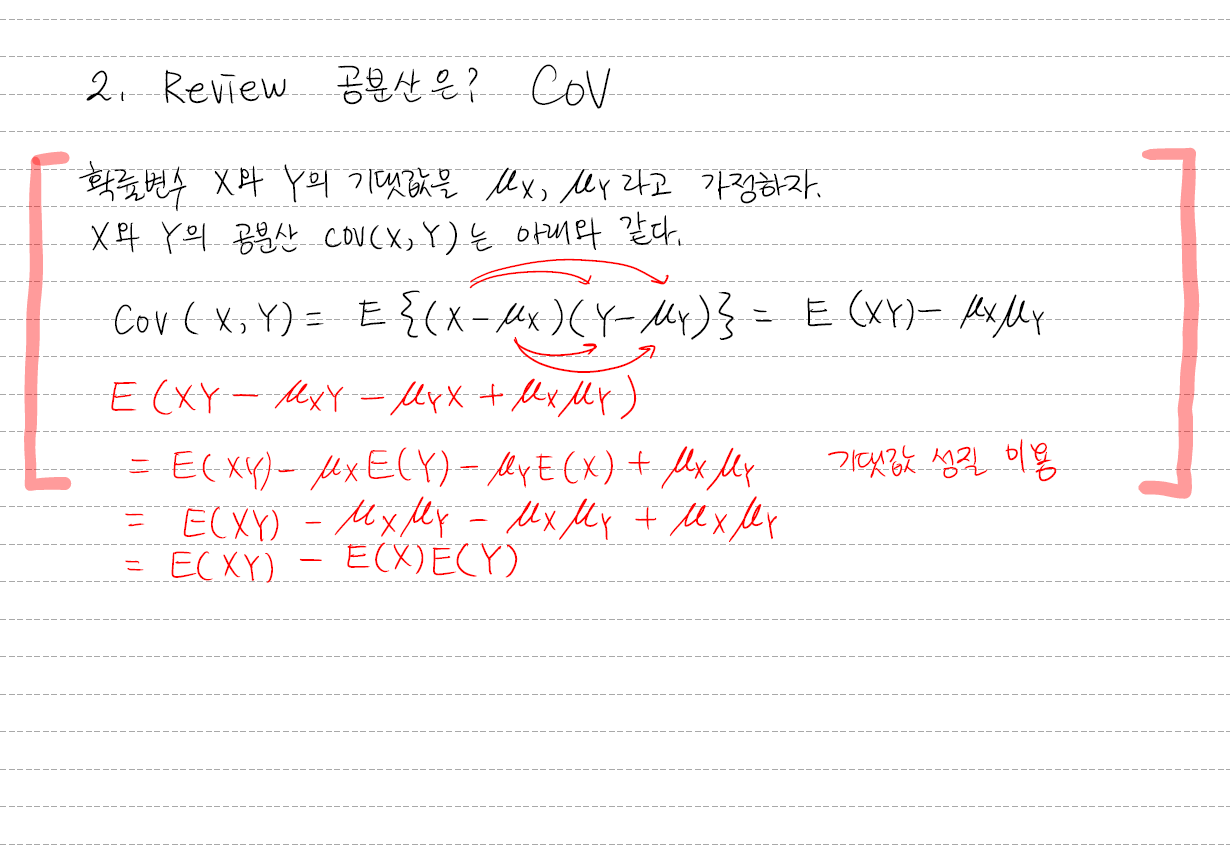 2. Review 공분산은? CoV
확률변수 X와 Y의 기댓값을 μX, μY라고 가정하자.
X와 Y의 공분산 COV(X,Y)는 아래와 같다.
Cov(X,Y) = E{(X-μX)(Y-μY)} = E(XY)-μXμY
E(XY-μXY-μYX+μXμY)
= E(XY)-μXE(Y)-μYE(X)+μXμY 기댓값 성질 이용
= E(XY)-μXμY-μXμY+μXμY
= E(XY)-E(X)E(Y)